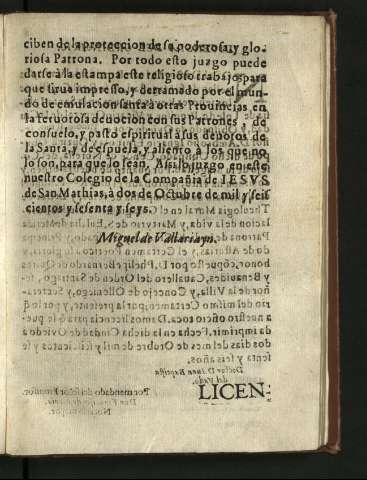 ciben de la proteccion de su poderosa, y glo-
riosa Patrona. Por todo esto juzgo puede
darse à la estampa este religioso trabajo; para
que sirua impresso, y derramado por el mun-
do de emulacion santa à otras Prouincias en
la feruorosa deuocion con sus Patrones, de
consuelo, y pasto espiritual à sus deuotos de
la Santa, y de espuela, y aliento à los que no
jo son, para que lo sean. Assi lo juzgo en este
nuestro Colegio de la Compañia de IESVS
de San Mathias, à dos de Octubre de mil y seis
cientos y sesenta y seys.
Miguel de Vallariayn.
LICEN-